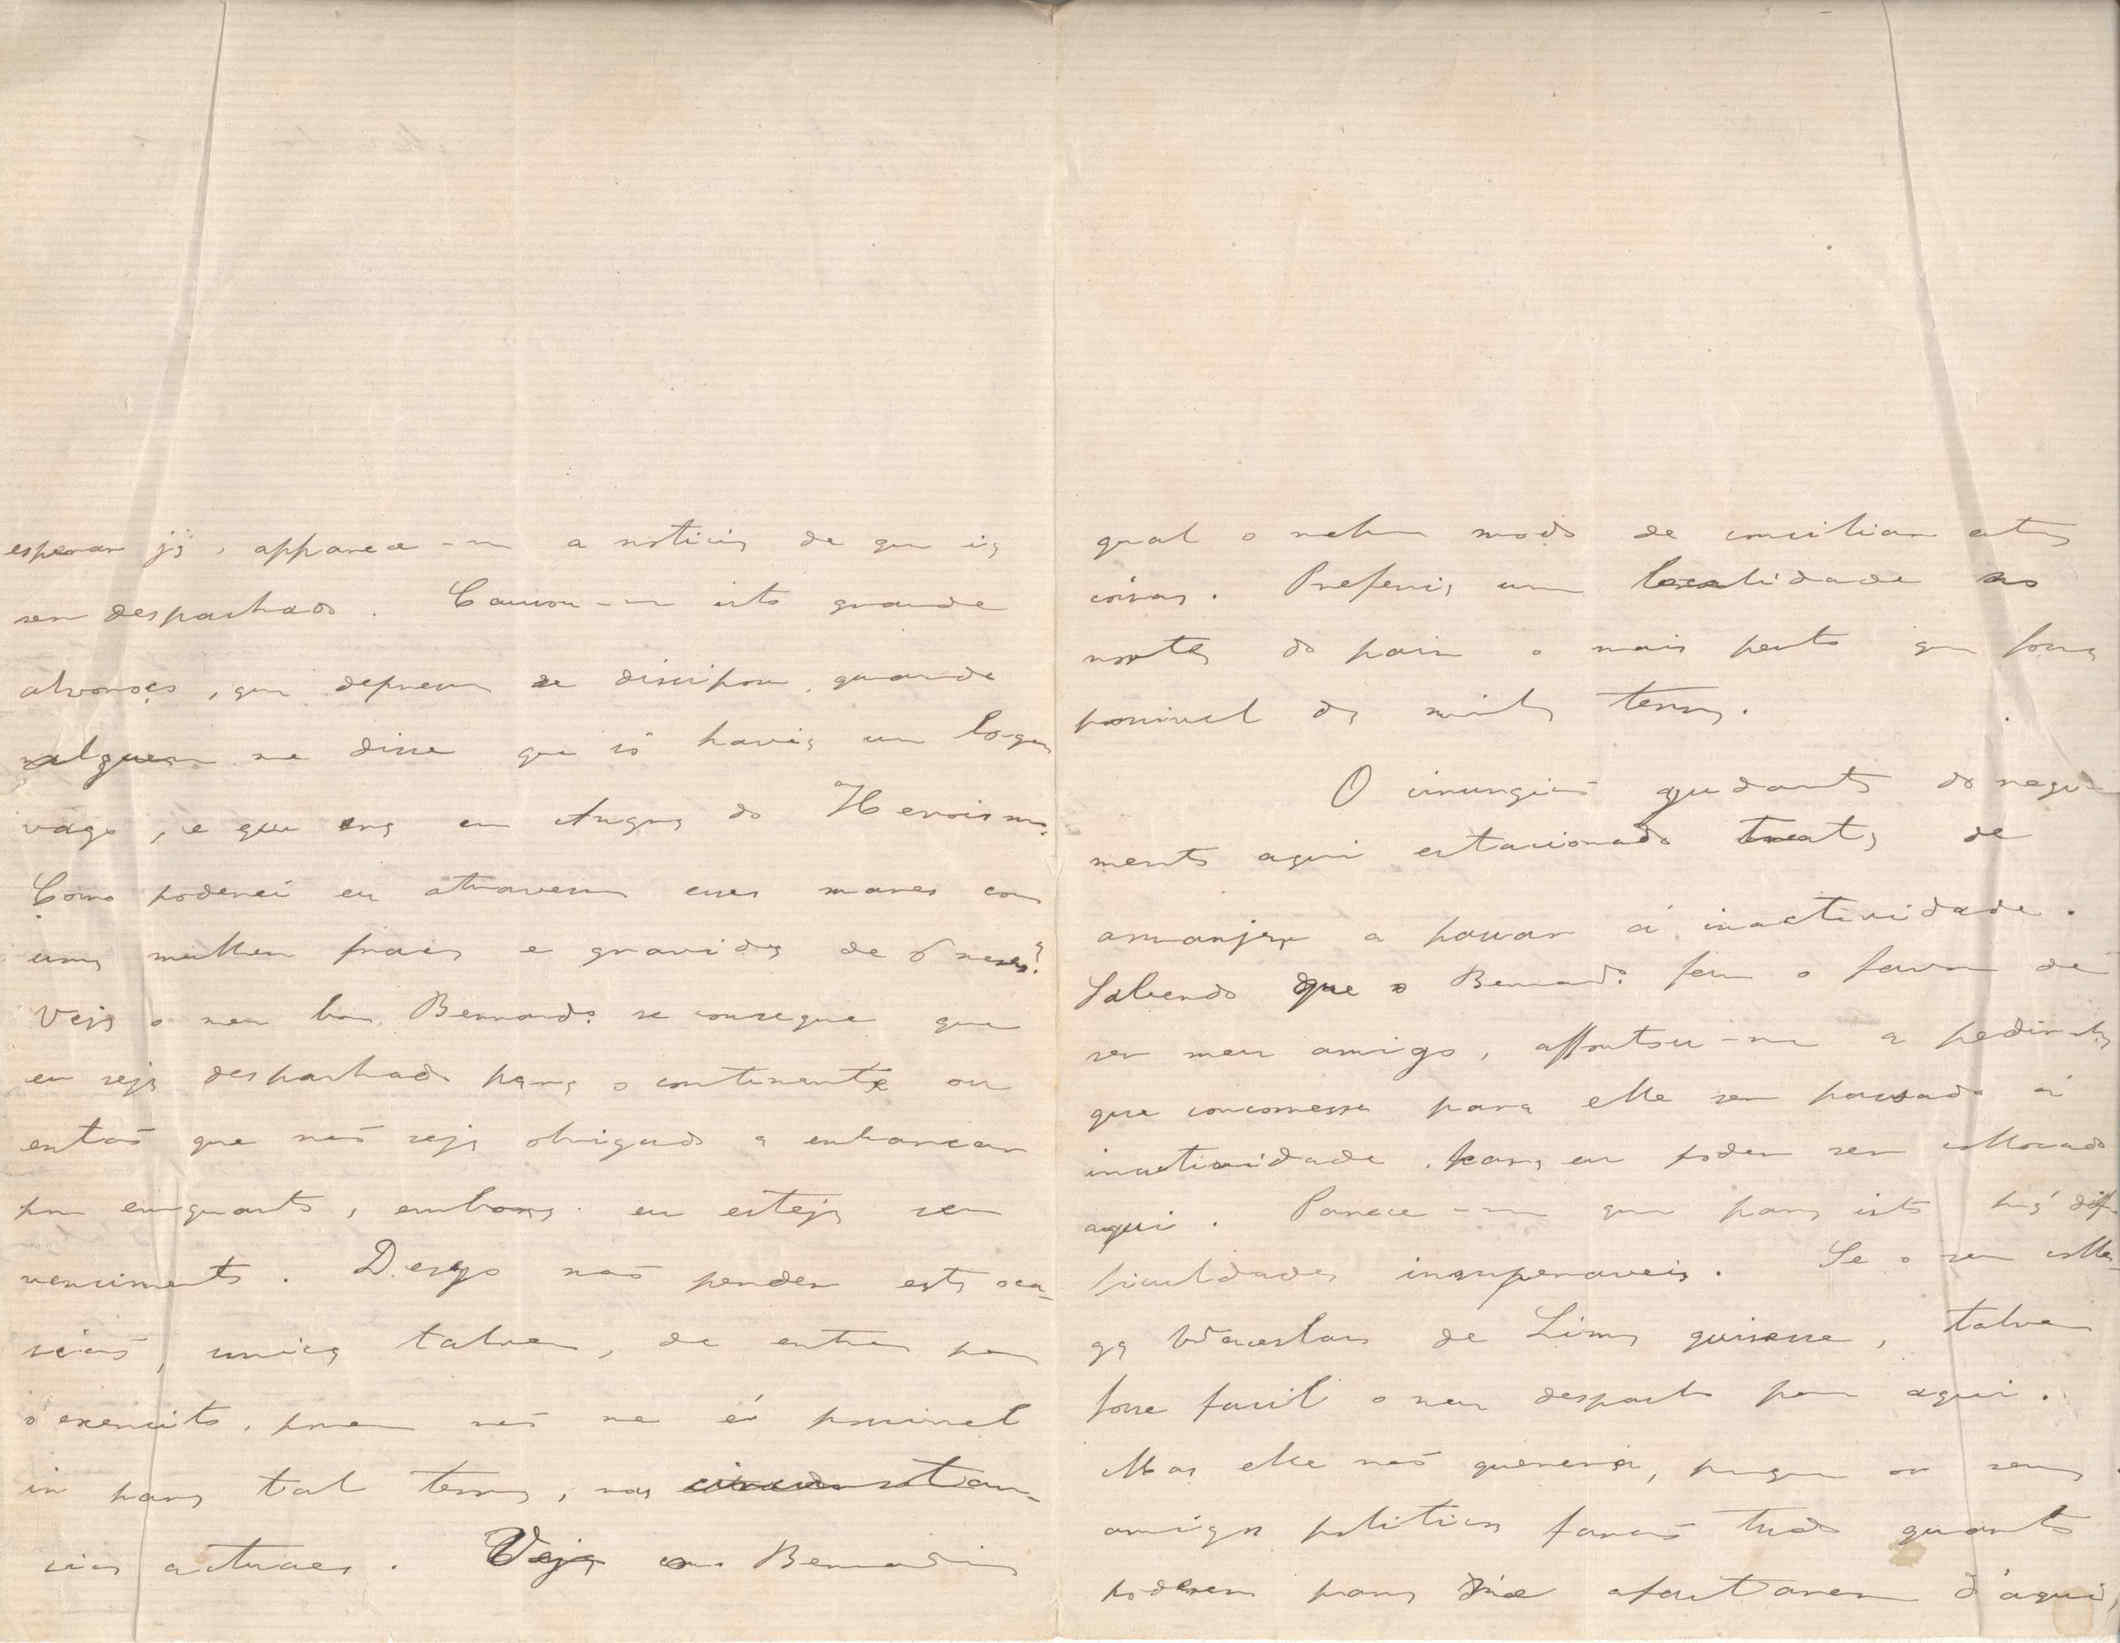 esperar já, apparece-me a noticia de que ia
ser despachado. Causou-me isto grande
alvoroço, que depressa se dissipou, quando
alguem me disse que só havia um logar
vago, e que era em Angra do Heroismo.
Como poderei eu atravessar esses mares com
uma mulher fraca e gravida de 6 meses?
Veja o meu bom Bernardo se consegue que
eu seja despachado para o continente ou
então que não seja obrigado a embarcar
por emquanto, embora eu esteja sem
vencimento. Desejo não perder esta oca-
sião, unica talvez, de entrar para
o exercito, porem não me é possivel
ir para tal terra, nas circumstan-
cias actuaes. Veja como Bernardino
qual o melhor modo de conciliar estas
coisas. Preferia uma localidade no
norte do paiz o mais perto que fosse
possivel da minha terra.
O cirurgião ajudante do regi-
mento aqui estacionado trata de
arranjar a passar á inactividade.
Sabendo que o Bernardo tem o favor de
ser meu amigo, affoutou-me a pedir-lhe
que concorresse para elle ser passado á
inactividade, para eu poder ser collocado
aqui. Parece-me que para isto há dif-
ficuldades insuperaveis. Se o seu colle-
ga Wenceslau de Lima quisesse, talvez
fosse facil o meu despacho para aqui.
Mas elle não quererá, porque os seus
amigos politicos farão tudo quanto
poderem para me afastarem d'aqui,